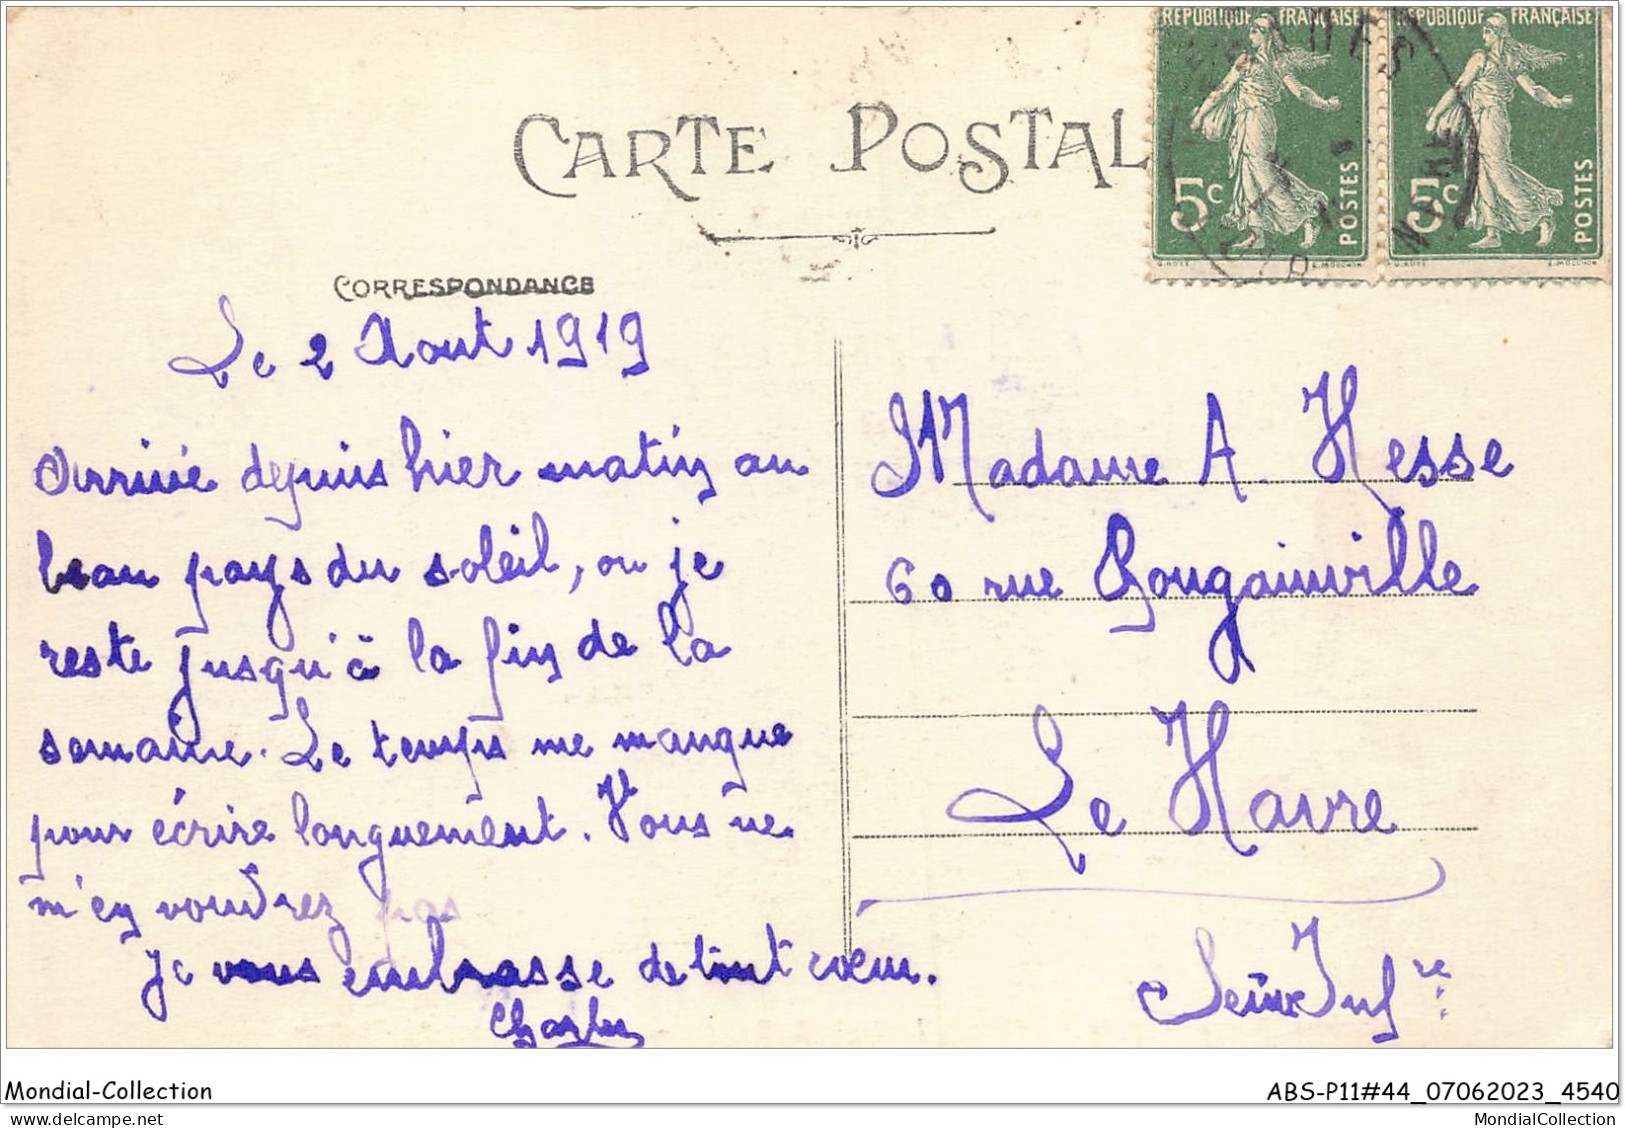 CARTE POSTAL
RÉPUBLIQUE FRANÇAISE
5c
POSTES
RÉPUBLIQUE FRANÇAISE
5c
POSTES
CORRESPONDANCE
Le 2 Aout 1919
Arrivé depuis hier matin au
beau pays du soleil, ou je
reste jusqu'à la fin de la
semaine. Le temps me manque
pour écrire longuement. Vous ne
m'en voudrez pas
Je vous embrasse de tout cœur.
Charles
Madame A. Hesse
60 rue Bougainville
Le Havre
Seine Infre
Mondial-Collection
ABS-P11#44_07062023_4540
MondialCollection